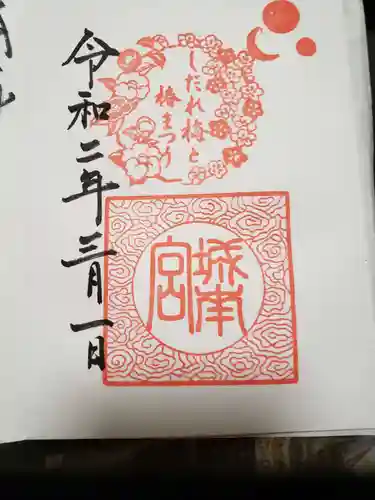 しだれ梅と
椿まつり
城南宮
令和二年三月一日